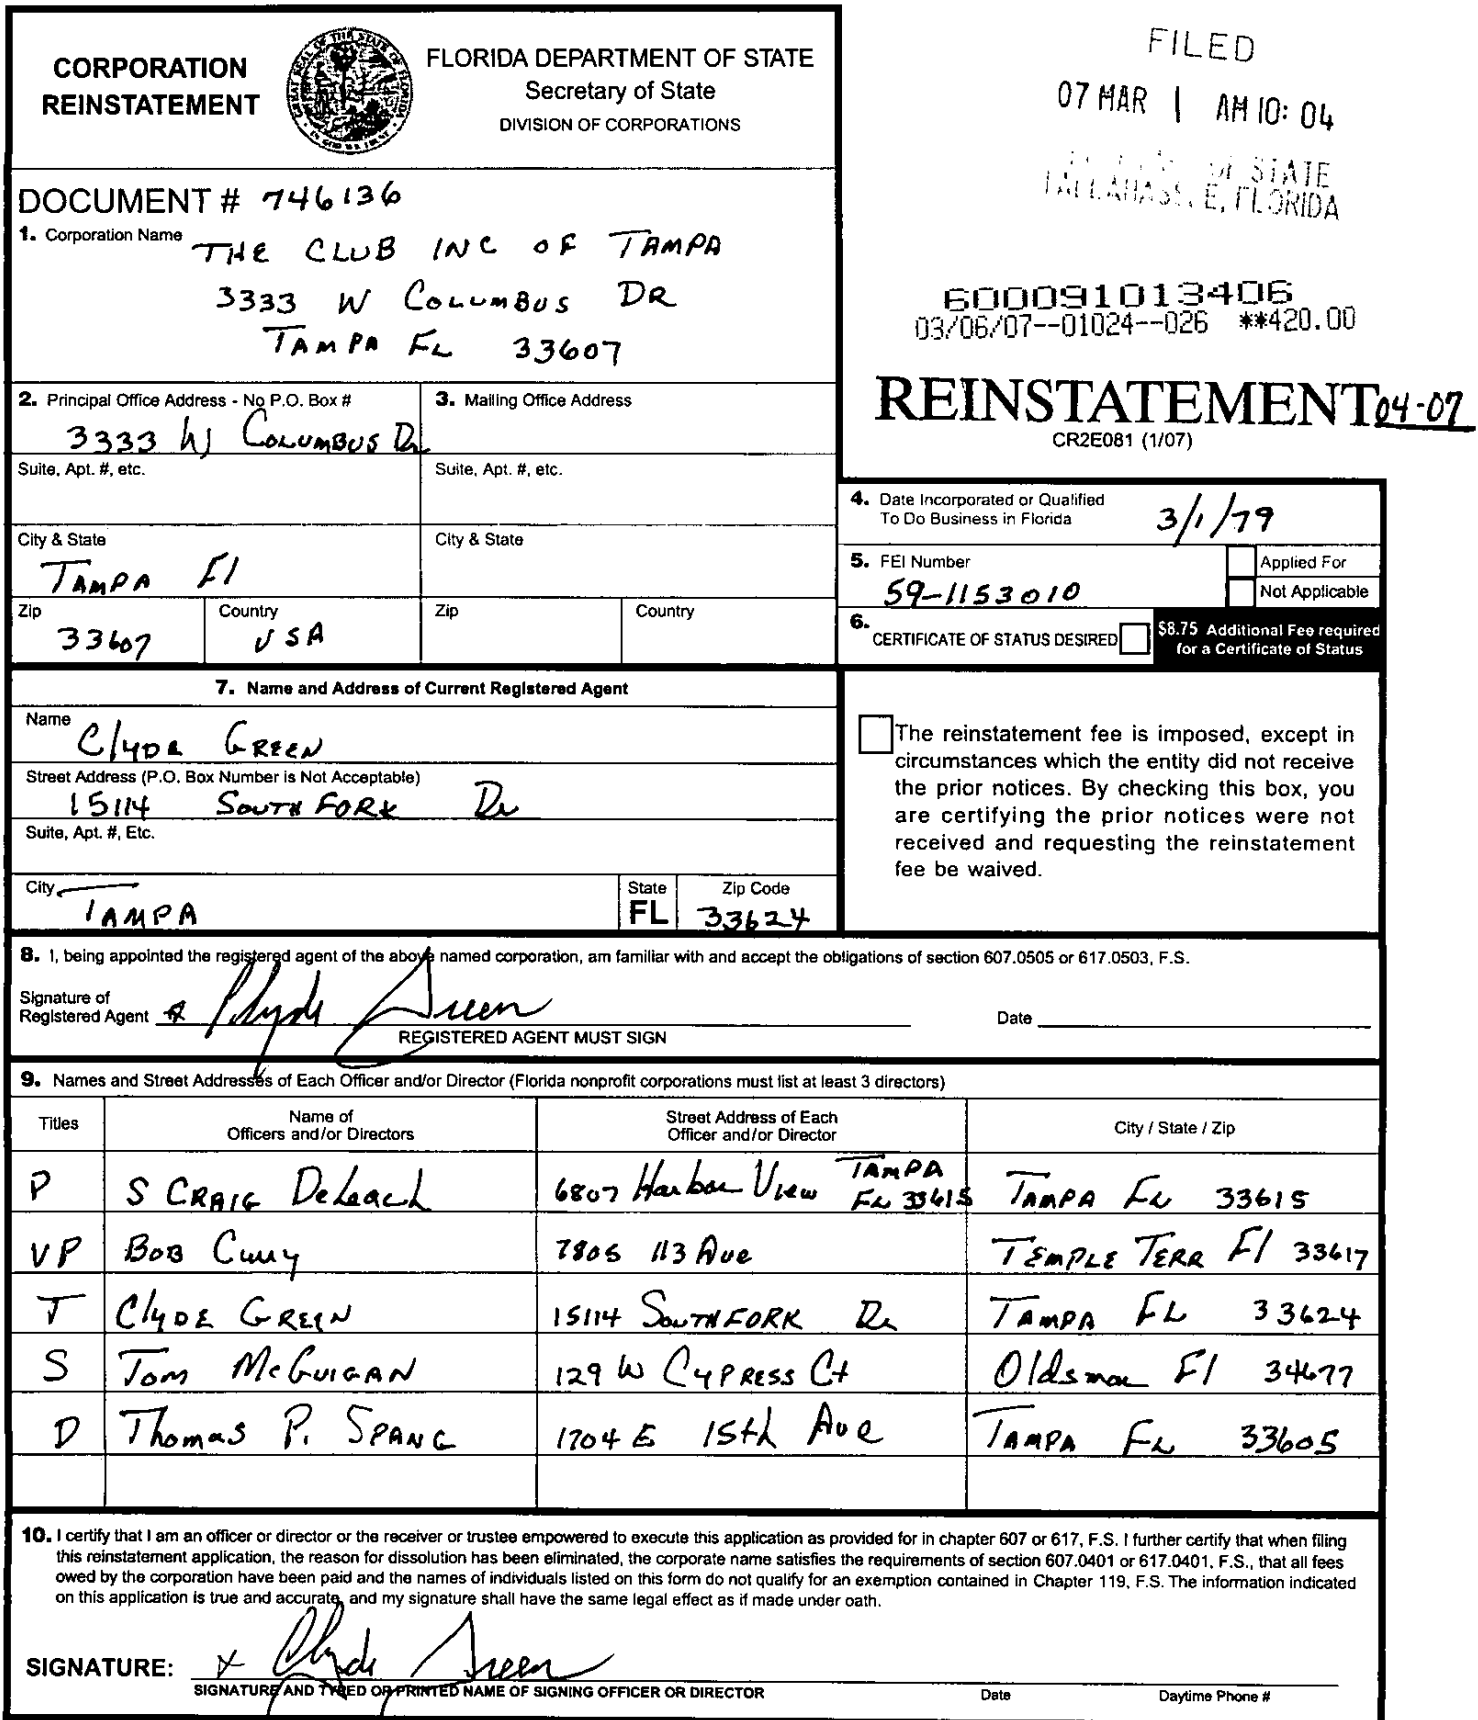 CORPORATION
REINSTATEMENT
FLORIDA DEPARTMENT OF STATE
Secretary of State
DIVISION OF CORPORATIONS
FILED
07 MAR 1 AM 10: 04
OF STATE
FLORIDA
DOCUMENT # 746136
1. Corporation Name
THE CLUB INC OF TAMPA
3333 W COLUMBUS DR
TAMPA FL 33607
600091013406
03/06/07--01024--026 **420.00
REINSTATEMENT 04-07
CR2E081 (1/07)
2. Principal Office Address - No P.O. Box #
3333 W COLUMBUS Dr
3. Mailing Office Address
Suite, Apt. #, etc.
Suite, Apt. #, etc.
City & State
TAMPA Fl
City & State
Zip
33607
Country
USA
Zip
Country
4. Date Incorporated or Qualified
To Do Business in Florida
3/1/79
5. FEI Number
59-1153010
Applied For
Not Applicable
6. CERTIFICATE OF STATUS DESIRED
$8.75 Additional Fee required
for a Certificate of Status
7. Name and Address of Current Registered Agent
Name
ClyDE GREEN
Street Address (P.O. Box Number is Not Acceptable)
15114 SOUTHFORK Dr
Suite, Apt. #, Etc.
City
TAMPA
State
FL
Zip Code
33624
The reinstatement fee is imposed, except in
circumstances which the entity did not receive
the prior notices. By checking this box, you
are certifying the prior notices were not
received and requesting the reinstatement
fee be waived.
8. I, being appointed the registered agent of the above named corporation, am familiar with and accept the obligations of section 607.0505 or 617.0503, F.S.
Signature of
Registered Agent Clyde Green
Date
REGISTERED AGENT MUST SIGN
9. Names and Street Addresses of Each Officer and/or Director (Florida nonprofit corporations must list at least 3 directors)
Titles
Name of
Officers and/or Directors
Street Address of Each
Officer and/or Director
City / State / Zip
P S CRAIG DeLeach 6807 Harbor View TAMPA FL 33615 TAMPA FL 33615
VP BOB Curry 7805 113 Ave TEMPLE TERR Fl 33617
T ClyDE GREEN 15114 SOUTHFORK Dr TAMPA FL 33624
S Tom McGUIGAN 129 W CYPRESS Ct Oldsmar Fl 34677
D Thomas P. SPANG 1704 E 15th Ave TAMPA FL 33605
10. I certify that I am an officer or director or the receiver or trustee empowered to execute this application as provided for in chapter 607 or 617, F.S. I further certify that when filing
this reinstatement application, the reason for dissolution has been eliminated, the corporate name satisfies the requirements of section 607.0401 or 617.0401, F.S., that all fees
owed by the corporation have been paid and the names of individuals listed on this form do not qualify for an exemption contained in Chapter 119, F.S. The information indicated
on this application is true and accurate, and my signature shall have the same legal effect as if made under oath.
SIGNATURE: x Clyde Green
SIGNATURE AND TYPED OR PRINTED NAME OF SIGNING OFFICER OR DIRECTOR
Date
Daytime Phone #